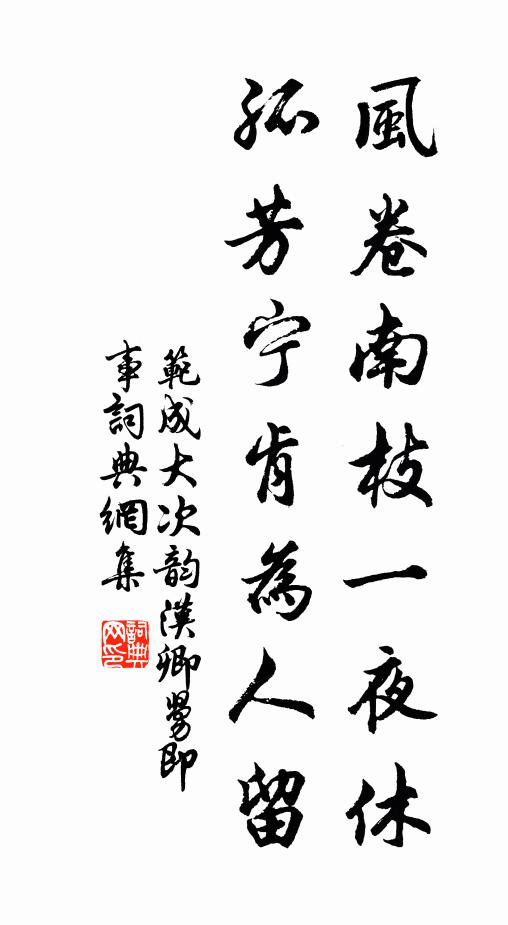 風卷南枝一夜休
孤芳宁肯為人留
範成大次韵漢卿舅即
事詞典網集
詞典网印